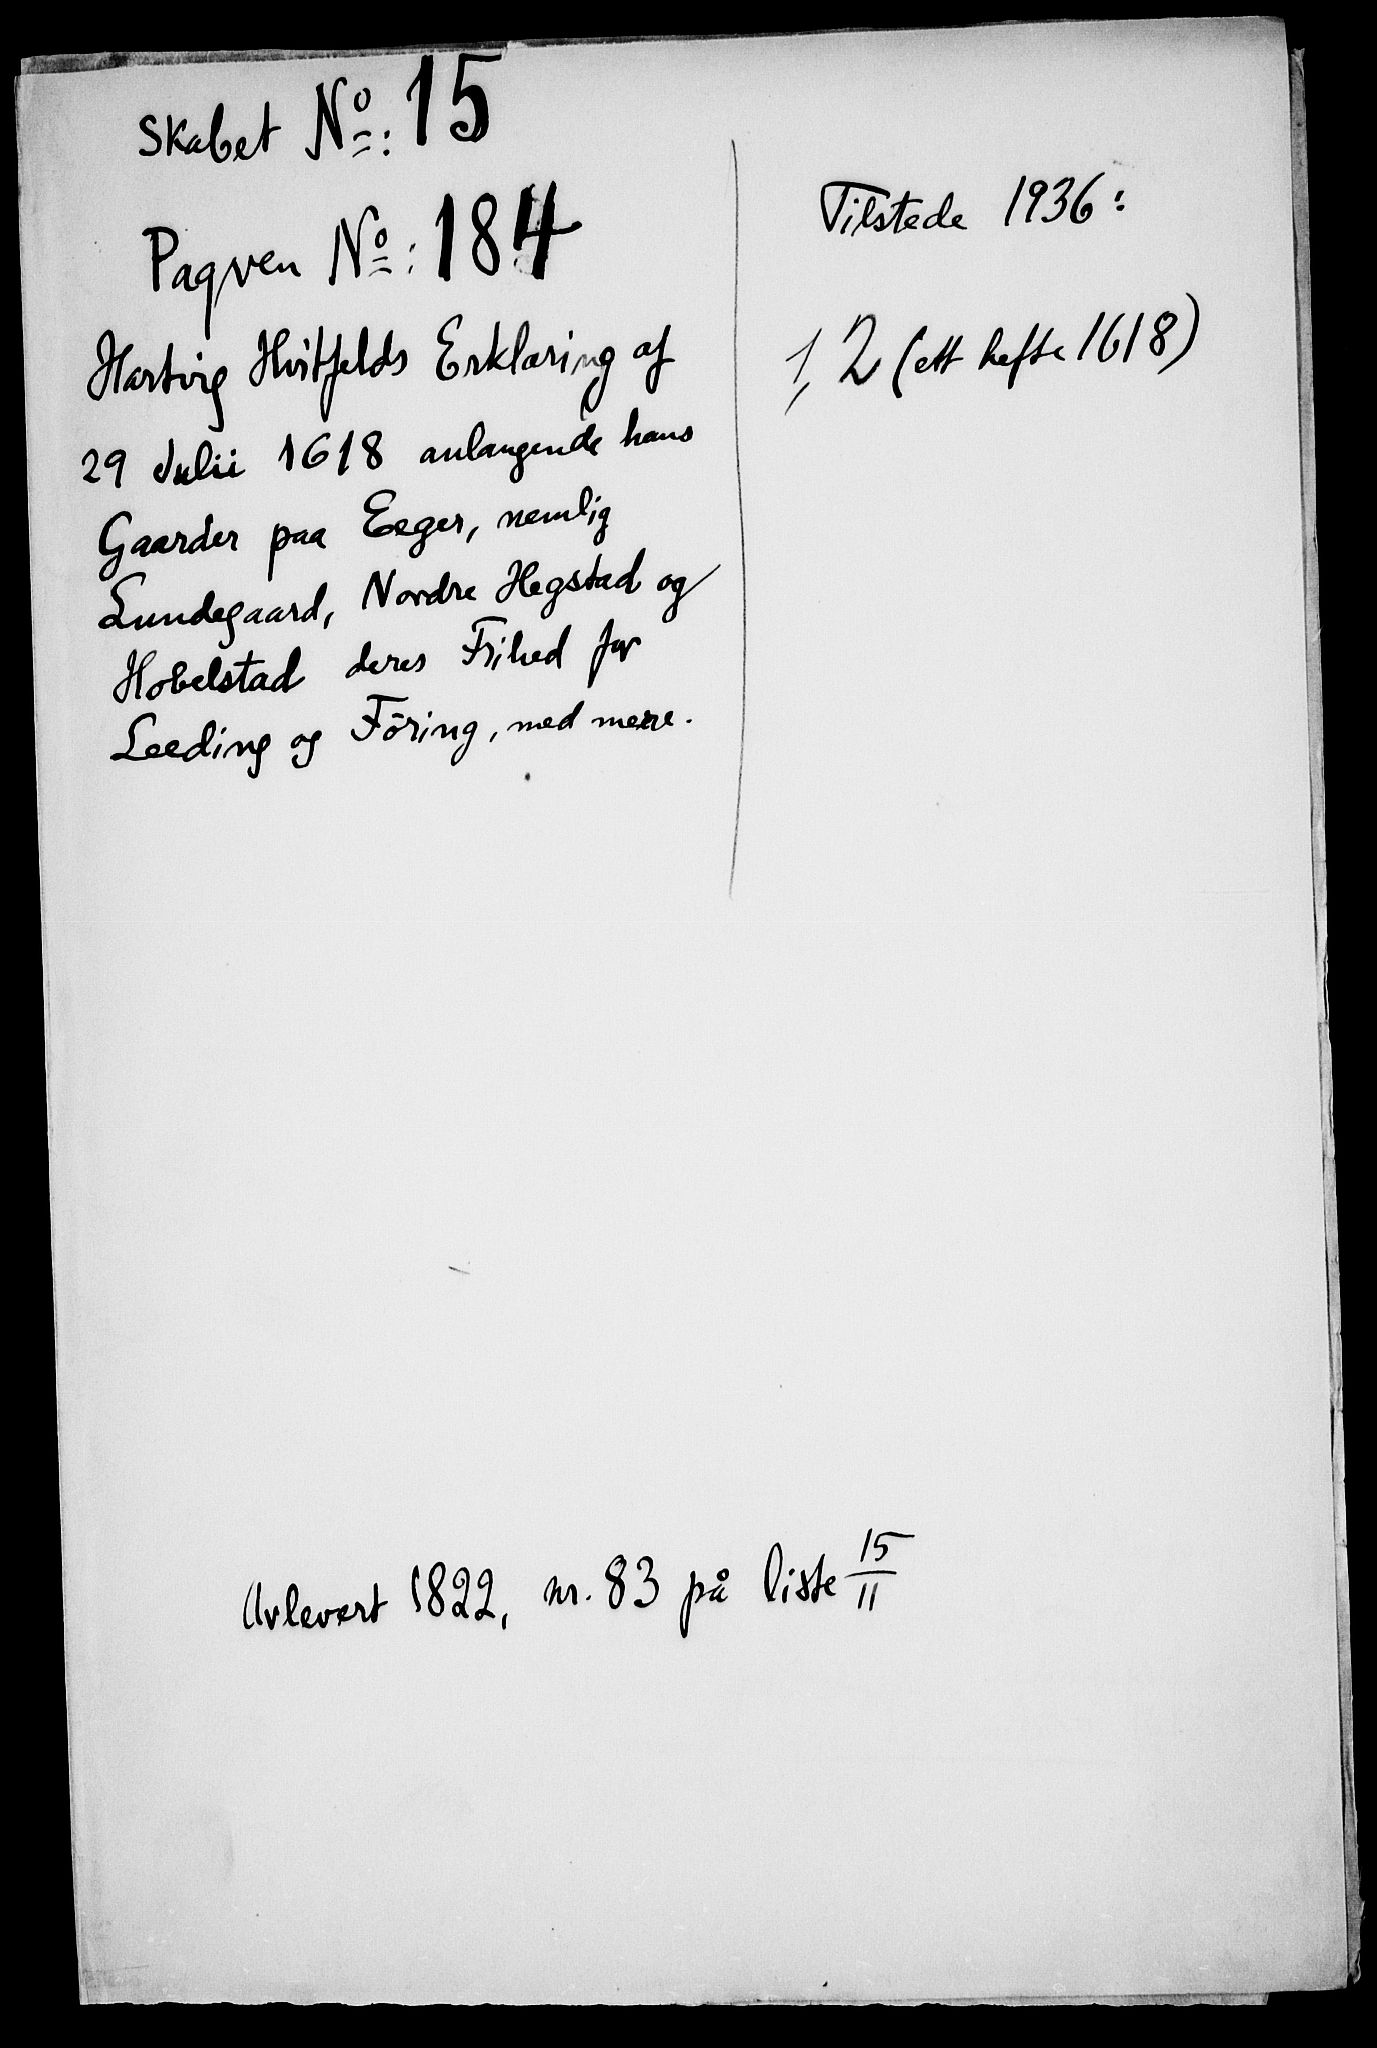 Skabet No: 15
Paqven No: 184
Hartvig Hvitfelds Erklæring af
29 Julii 1618 anlangende hans
Gaarder paa Eeger, nemlig
Lundegaard, Nordre Hegstad og
Hobelstad deres Frihed for
Leeding og Föring, med mere.
Tilstede 1936:
1, 2 (ett hefte 1618)
Avlevert 1822, nr. 83 på liste 15/11